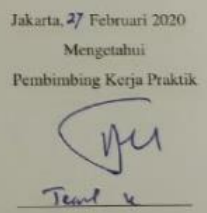 Jakarta, 27 Februari 2020
Mengetahui
Pembimbing Kerja Praktik